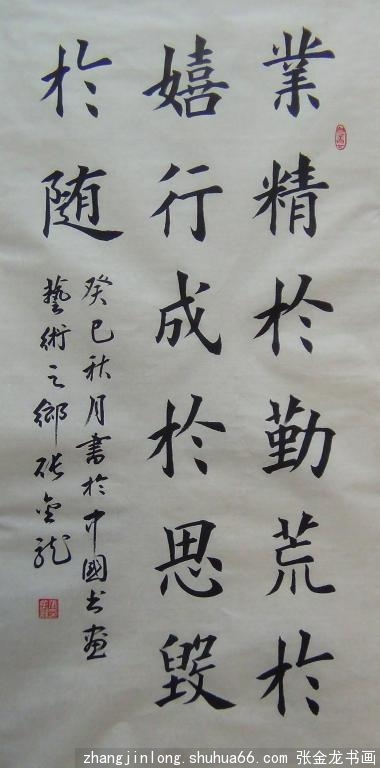 業精於勤荒於
嬉行成於思毀
於随
癸巳秋月書於中國书画
藝術之鄉张金龙
zhangjinlong.shuhua66.com 张金龙书画